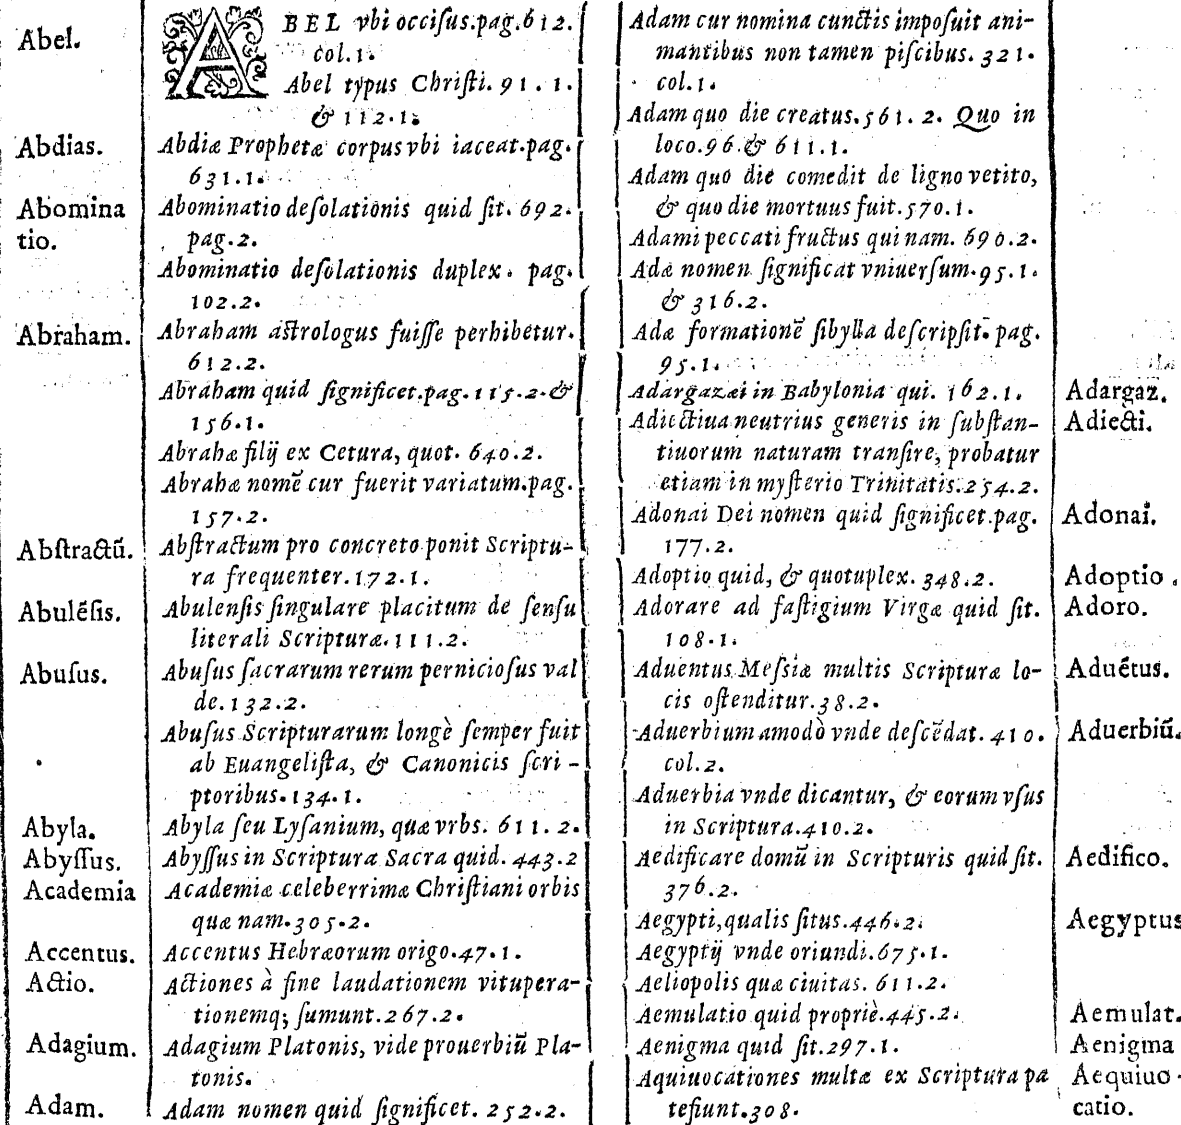 Abel.
ABEL vbi occiſus.pag.612.
col.1.
Abel typus Chriſti. 91. 1.
& 112.1.
Abdias.
Abdiæ Prophetæ corpus vbi iaceat.pag.
631.1.
Abomina
tio.
Abominatio deſolationis quid ſit. 692.
pag.2.
Abominatio deſolationis duplex. pag.
102.2.
Abraham.
Abraham aſtrologus fuiſſe perhibetur.
612.2.
Abraham quid ſignificet.pag.115.2.&
156.1.
Abrahæ filij ex Cetura, quot. 640.2.
Abrahæ nomẽ cur fuerit variatum.pag.
157.2.
Abſtractũ.
Abſtractum pro concreto ponit Scriptu-
ra frequenter.172.1.
Abulẽſis.
Abulenſis ſingulare placitum de ſenſu
literali Scripturæ.111.2.
Abuſus.
Abuſus ſacrarum rerum pernicioſus val
de.132.2.
Abuſus Scripturarum longè ſemper fuit
ab Euangeliſta, & Canonicis ſcri-
ptoribus.134.1.
Abyla.
Abyla ſeu Lyſanium, quæ vrbs. 611. 2.
Abyſſus.
Abyſſus in Scriptura Sacra quid. 443.2
Academia
Academiæ celeberrimæ Chriſtiani orbis
quæ nam.305.2.
Accentus.
Accentus Hebræorum origo.47.1.
Actio.
Actiones à fine laudationem vitupera-
tionemq; ſumunt.267.2.
Adagium.
Adagium Platonis, vide prouerbiũ Pla-
tonis.
Adam.
Adam nomen quid ſignificet. 252.2.
Adam cur nomina cunctis impoſuit ani-
mantibus non tamen piſcibus. 321.
col.1.
Adam quo die creatus.561. 2. Quo in
loco.96.& 611.1.
Adam quo die comedit de ligno vetito,
& quo die mortuus fuit.570.1.
Adami peccati fructus qui nam. 690.2.
Adæ nomen ſignificat vniuerſum.95.1.
& 316.2.
Adæ formationẽ ſibylla deſcripſit. pag.
95.1.
Adargazæi in Babylonia qui. 162.1.
Adargaz.
Adiectiua neutrius generis in ſubſtan-
tiuorum naturam tranſire, probatur
etiam in myſterio Trinitatis.254.2.
Adiecti.
Adonai Dei nomen quid ſignificet.pag.
177.2.
Adonai.
Adoptio quid, & quotuplex. 348.2.
Adoptio.
Adorare ad faſtigium Virgæ quid ſit.
108.1.
Adoro.
Aduentus Meſsiæ multis Scripturæ lo-
cis oſtenditur.38.2.
Aduẽtus.
Aduerbium amodò vnde deſcẽdat. 410.
col.2.
Aduerbiũ.
Aduerbia vnde dicantur, & eorum vſus
in Scriptura.410.2.
Aedificare domũ in Scripturis quid ſit.
376.2.
Aedifico.
Aegypti, qualis ſitus.446.2.
Aegyptus
Aegyptij vnde oriundi.675.1.
Aeliopolis quæ ciuitas. 611.2.
Aemulatio quid propriè.445.2.
Aemulat.
Aenigma quid ſit.297.1.
Aenigma
Aquiuocationes multæ ex Scriptura pa
teſiunt.308.
Aequiuo-
catio.